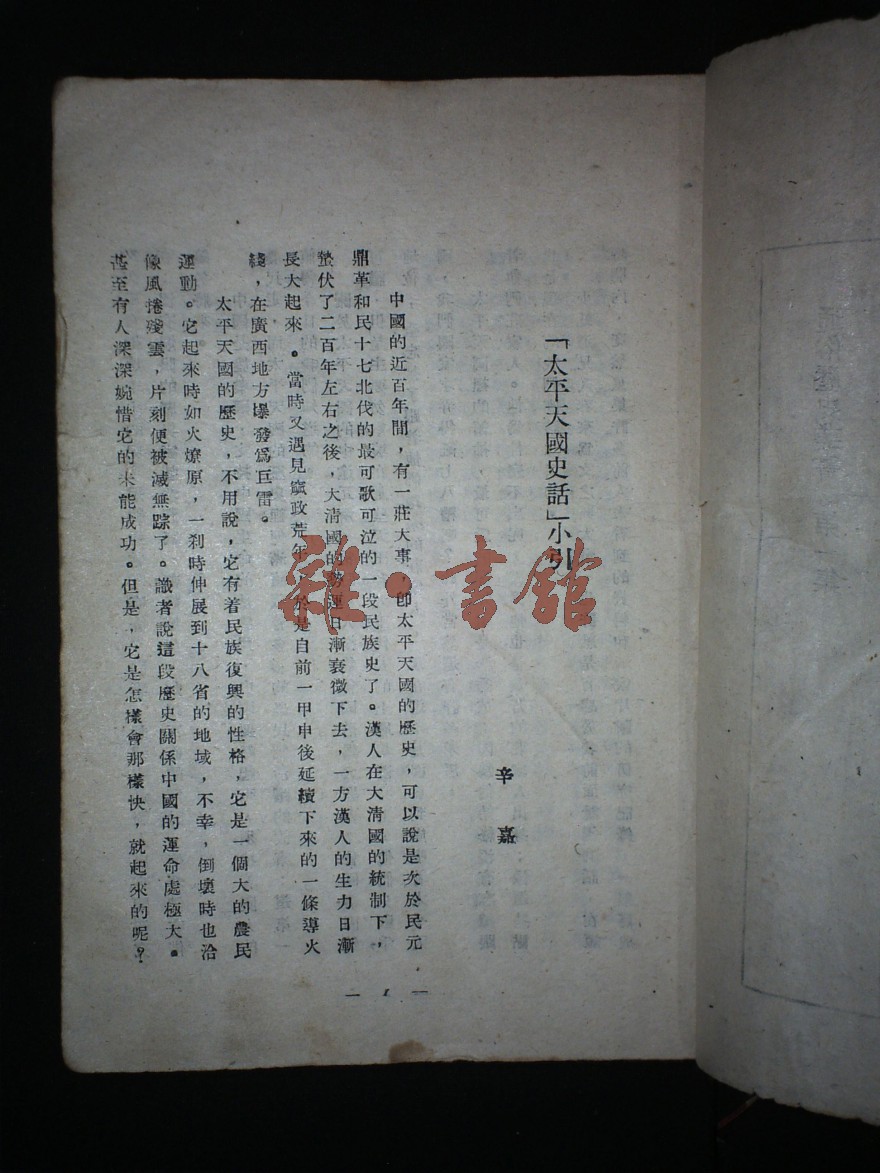 「太平天國史話」小引
辛嘉
中國的近百年間，有一莊大事，卽太平天國的歷史，可以說是次於民元
鼎革和民十七北伐的最可歌可泣的一段民族史了。漢人在大清國的統制下，
蟄伏了二百年左右之後，大清國的勢運日漸衰微下去，一方漢人的生力日漸
長大起來。當時又遇見窳政荒年，於是自前一甲申後延續下來的一條導火
綫，在廣西地方爆發爲巨雷。
太平天國的歷史，不用說，它有着民族復興的性格，它是一個大的農民
運動。它起來時如火燎原，一刹時伸展到十八省的地域，不幸，倒壞時也洽
像風捲殘雲，片刻便被滅無踪了。識者說這段歷史關係中國的運命處極大。
甚至有人深深婉惜它的未能成功。但是，它是怎樣會那樣快，就起來的呢？
— 1 —
雜·書館